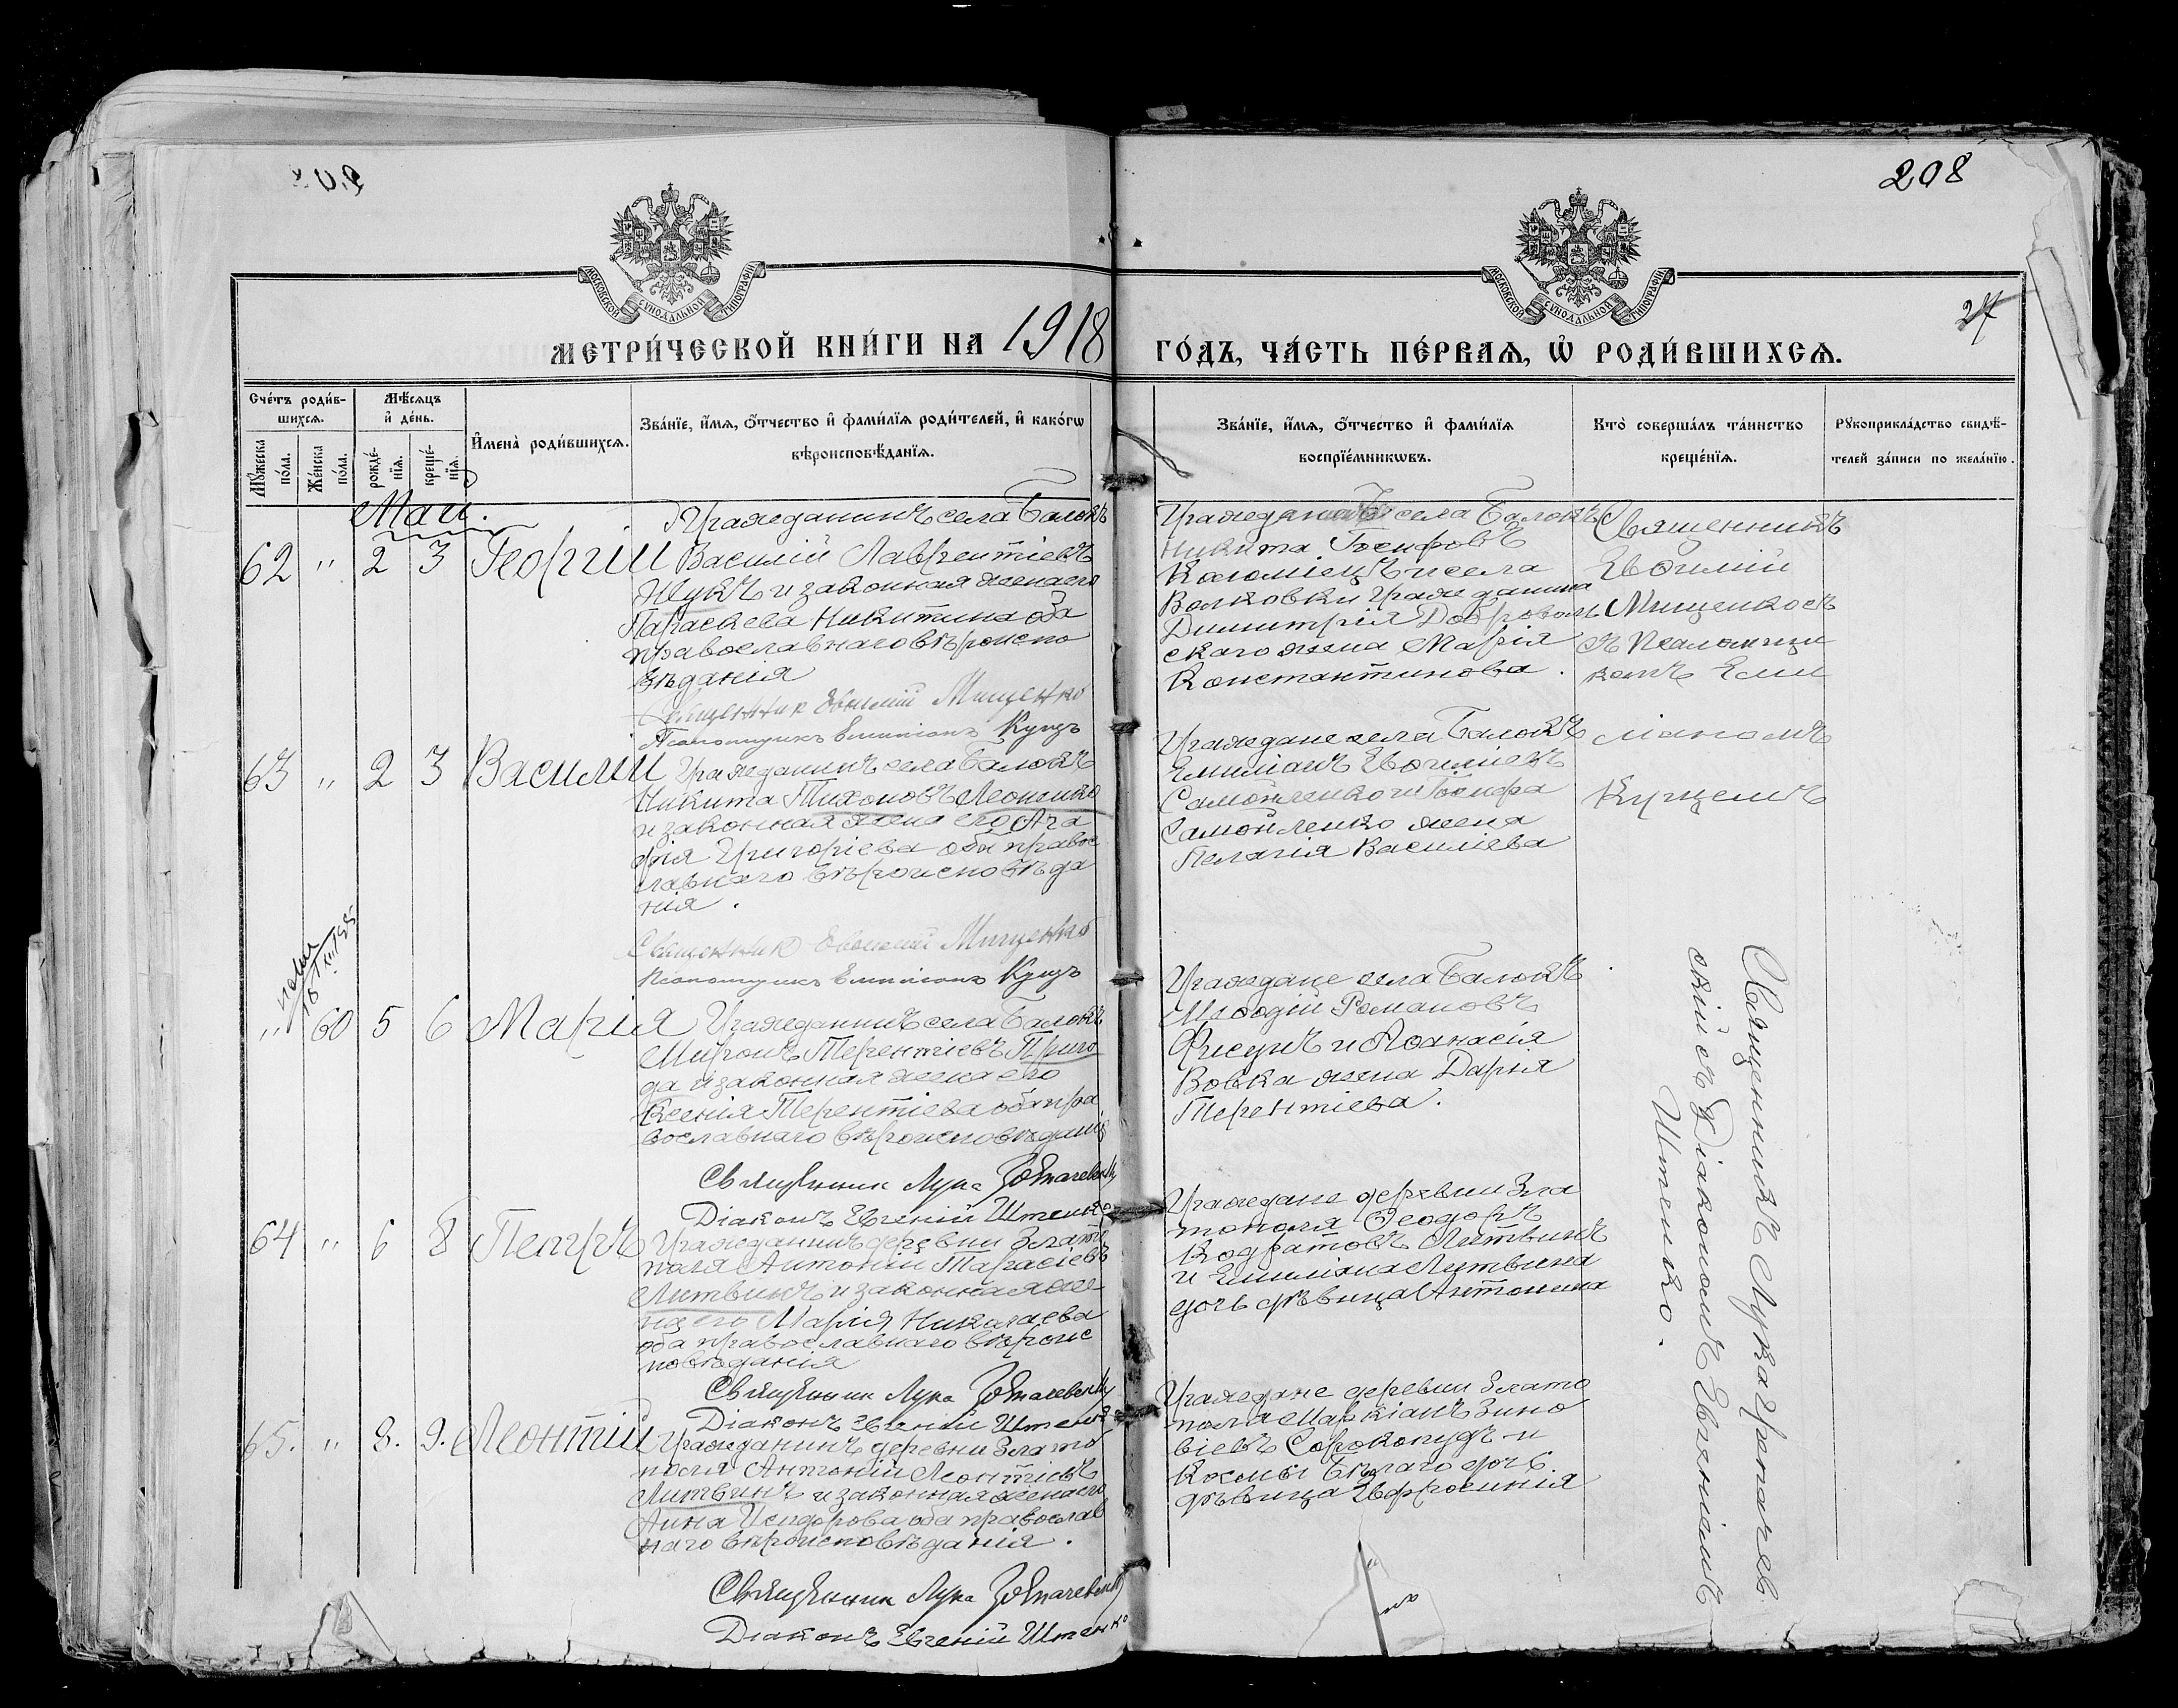 208
МОСКОВСКОЙ СѴНОДАЛЬНОЙ ТИПОГРАФІИ
МОСКОВСКОЙ СѴНОДАЛЬНОЙ ТИПОГРАФІИ
27
МЕТРИ́ЧЕСКОЙ КНИ́ГИ НА 1918 ГО́ДЪ, ЧА́СТЬ ПЕ́РВАѦ, Ѡ҆ РОДИ́ВШИХСѦ.
Сче́тъ роди́вшихсѧ.
Мꙋ́жеска по́ла.
Же́нска по́ла.
Мѣ́сѧцъ и҆ де́нь.
рожде́нїѧ.
креще́нїѧ.
И҆мена̀ роди́вшихсѧ.
Зва́нїе, и҆́мѧ, ѻ҆́тчество и҆ фами́лїѧ роди́телей, и҆ како́гѡ
вѣроисповѣ́данїѧ.
Зва́нїе, и҆́мѧ, ѻ҆́тчество и҆ фами́лїѧ
воспрїе́мникѡвъ.
Кто̀ соверша́лъ та́инство
креще́нїѧ.
Рꙋкоприкла́дство свидѣ́-
телей за́писи по жела́нїю.
Май.
62 " 2 3 Георгій
Гражданинъ села Балокъ
Василій Лаврентіевъ
Жукъ и законная жена его
Параскева Никитина оба
православнаго вѣроиспо
вѣданія
Священник Евфимій Мищенко
Псаломщикъ Емиліанъ Куцъ
села Балокъ
Никита Іосифовъ
Коломіецъ и села
Волковки гражданина
Димитрія Доброволь
скаго жена Марія
Константинова.
Священникъ
Евфимій
Мищенко съ
Псаломщи
комъ Еми
ліаномъ
Куцемъ
63 " 2 3 Василій
Гражданинъ села Балокъ
Никита Тихоновъ Леоненко
и законная жена его Ага
фія Григоріева оба правос
лавнаго вѣроисповѣда
нія.
Священник Евфимій Мищенко
Псаломщикъ Емиліанъ Куцъ
Граждане села Балокъ
Емиліанъ Евфиміевъ
Самойленко и Іосифа
Самойленко жена
Пелагія Василіева
" 60 5 6 Марія
Гражданинъ села Балокъ
Миронъ Терентіевъ Приго
да и законная жена его
Ксенія Терентіева оба пра
вославнаго вѣроисповѣданія
Священник Лука
Діаконъ Евгеній Штенко
Граждане села Балокъ
Меѳодій Романовъ
Фисунъ и Аѳанасія
Вовка жена Дарія
Терентіева.
Священникъ Лука
скій съ Діакономъ Евгеніемъ
Штенко.
64 " 6 8 Петръ
Гражданинъ деревни Злато
поля Антоній Тарасіевъ
Литвинъ и законная же-
на его Марія Николаева
оба православнаго вѣроис
повѣданія
Священник Лука
Діаконъ Евгеній Штенко
Граждане деревни Зла
тополя Ѳеодоръ
Кодратовъ Литвинъ
и Емиліана Литвина
дочь дѣвица Антонина
65. " 8. 9. Леонтій
Гражданинъ деревни Злато
поля Антоній Леонтіевъ
Литвинъ и законная жена его
Анна Исидорова оба православ
наго вѣроисповѣданія.
Священник Лука
Діаконъ Евгеній Штенко
Граждане деревни Злато
поля Маркіанъ Зино
віевъ Сорокопудъ и
Космы Бѣлаго дочь
дѣвица Евфросинія